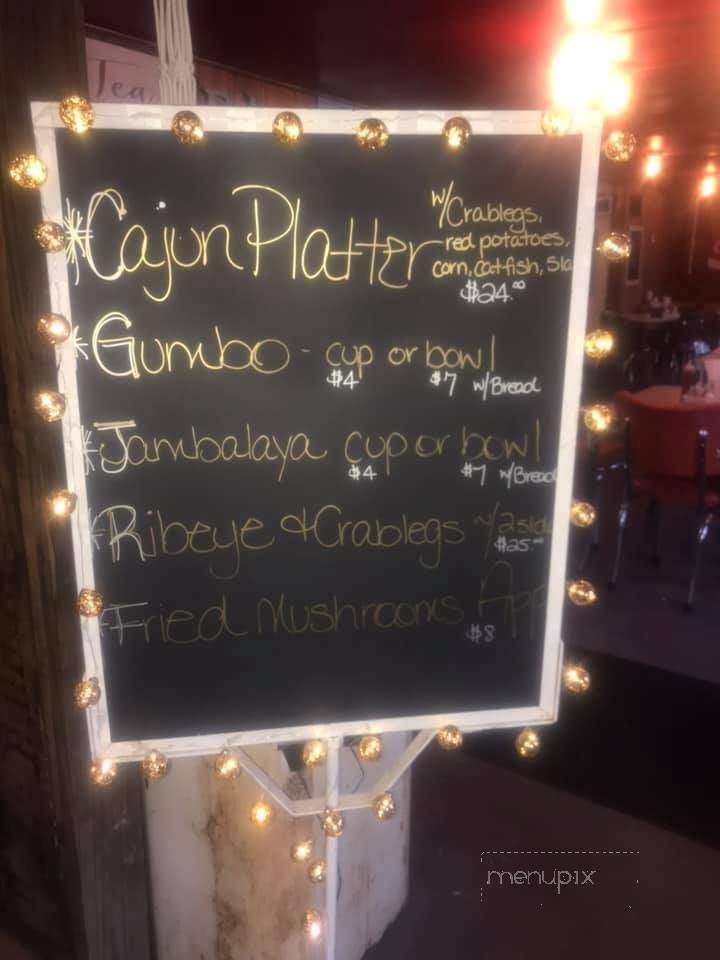 Tea
*Cajun Platter w/Crablegs,
red potatoes,
corn, catfish, Sla
$24.00
*Gumbo - cup or bowl
$4 $7 w/Bread
*Jambalaya cup or bowl
$4 $7 w/Bread
*Ribeye & Crablegs w/2 side
$25.00
*Fried Mushrooms App
$8
menupix